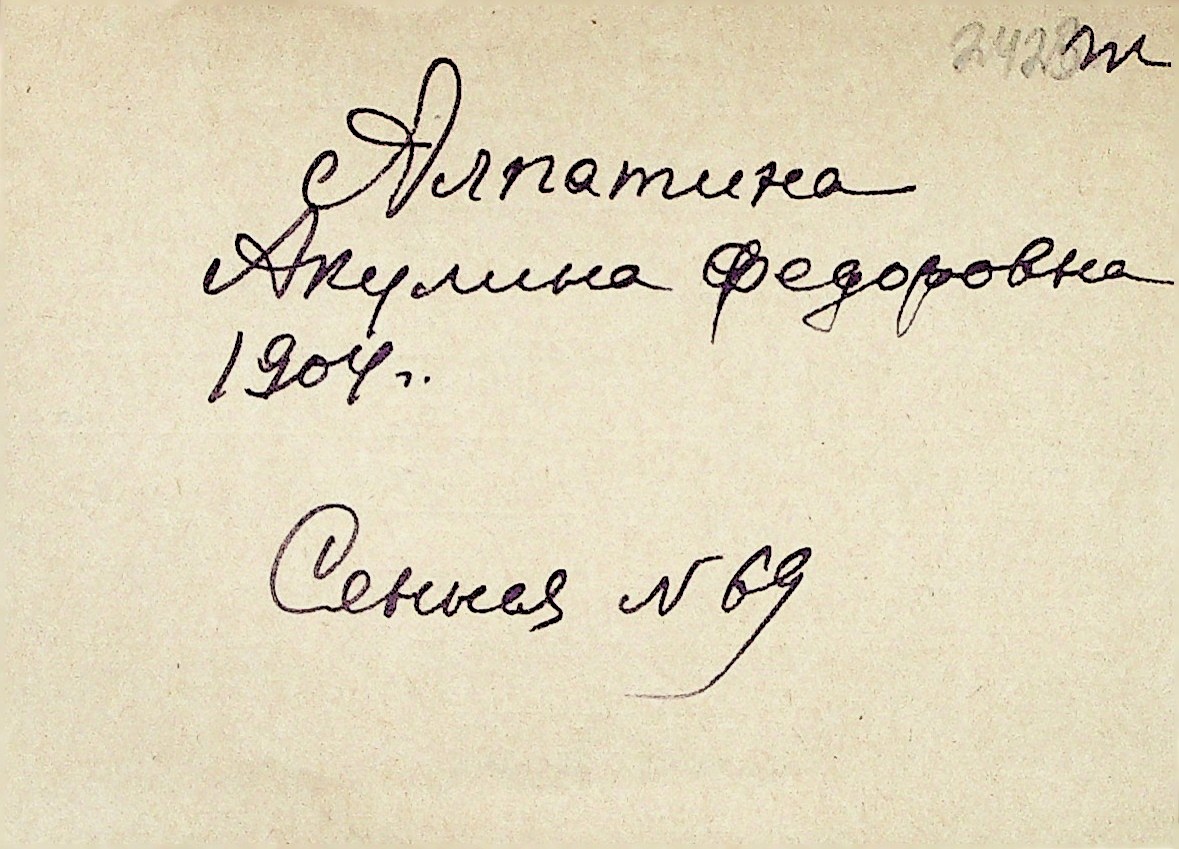 2423 т
Алпатина
Акулина Федоровна
1904 г.
Сенная N 69